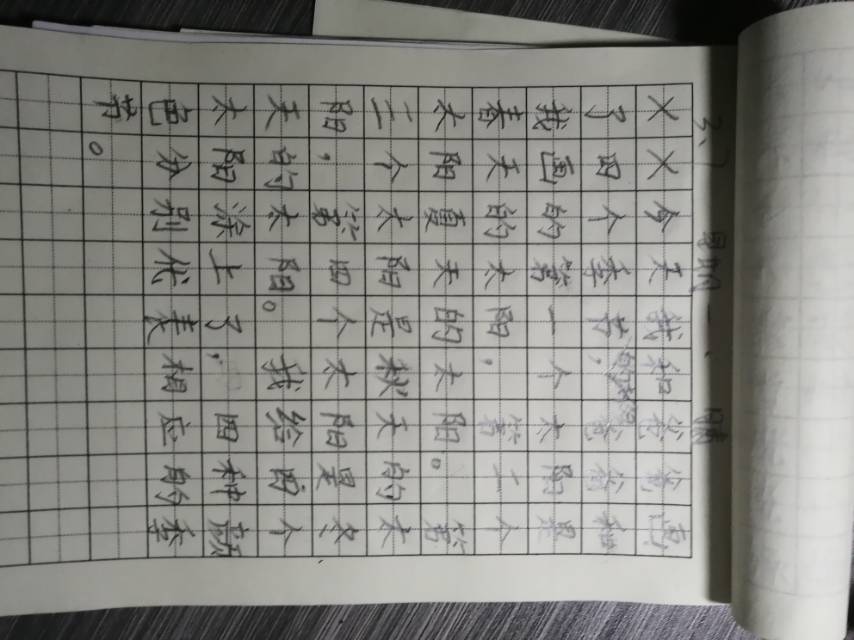 3、7 星期一、晴
××今天我和画
了四个季节,的太阳和
我画的第一个太阳是
春天的太阳,第二个
太阳夏天的太阳。第
三个太阳是秋天的太
阳,第四个太阳是冬
天的太阳。我给四个
太阳涂上了,四种颜
色分别代表相应的季
节。